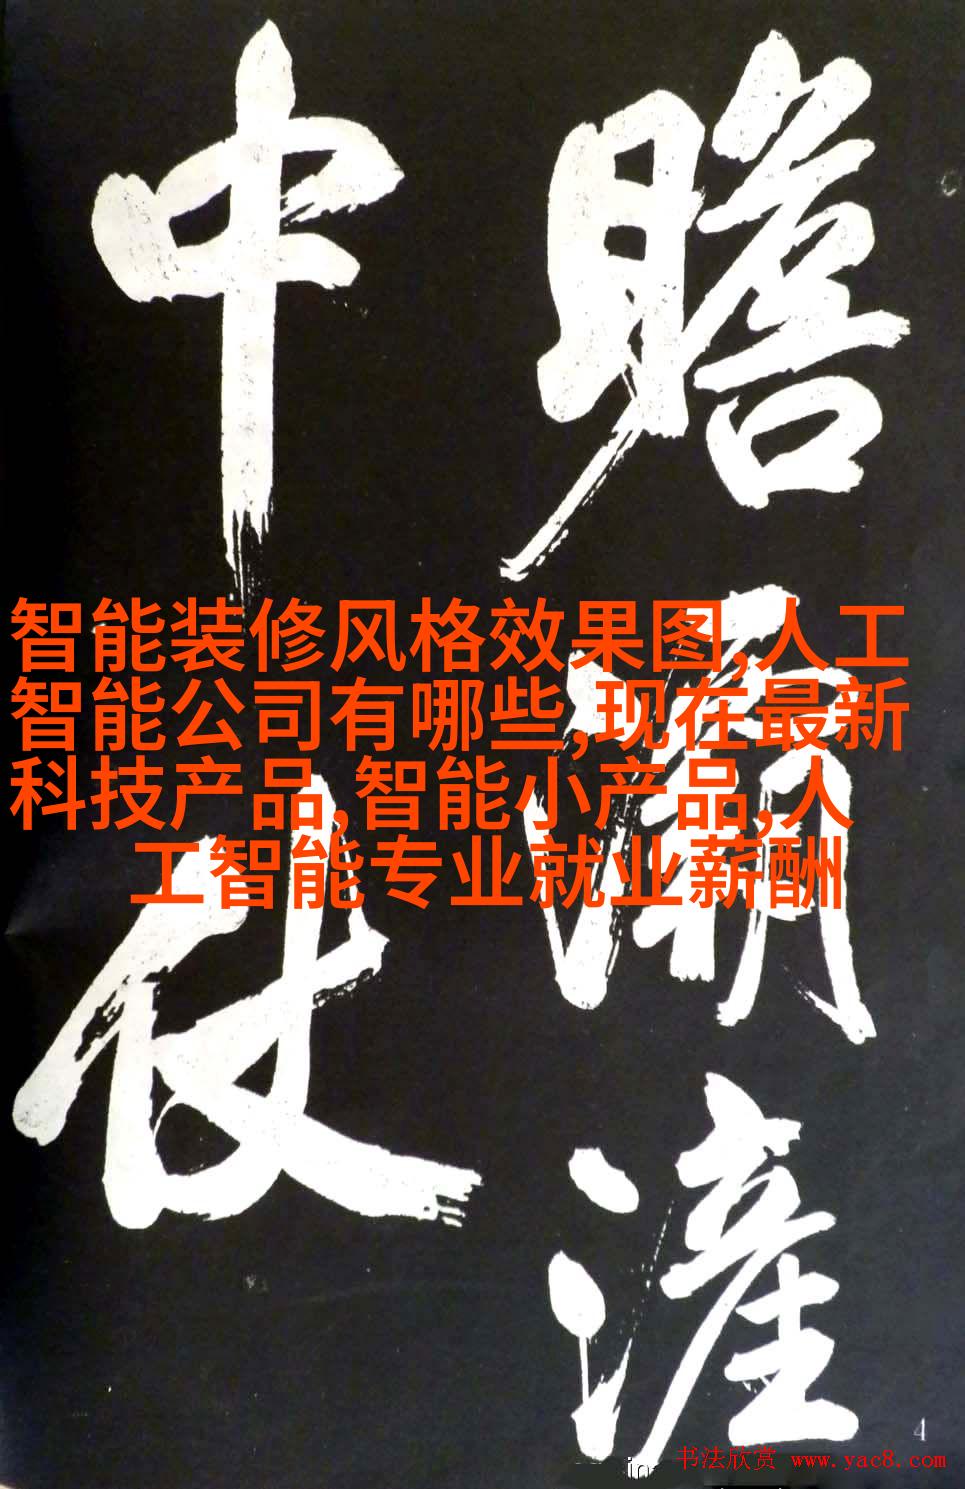 瞻灞滻
中仗
智能装修风格效果图,人工
智能公司有哪些,现在最新
科技产品,智能小产品,人
工智能专业就业薪酬
4
书法欣赏 www.yac8.com